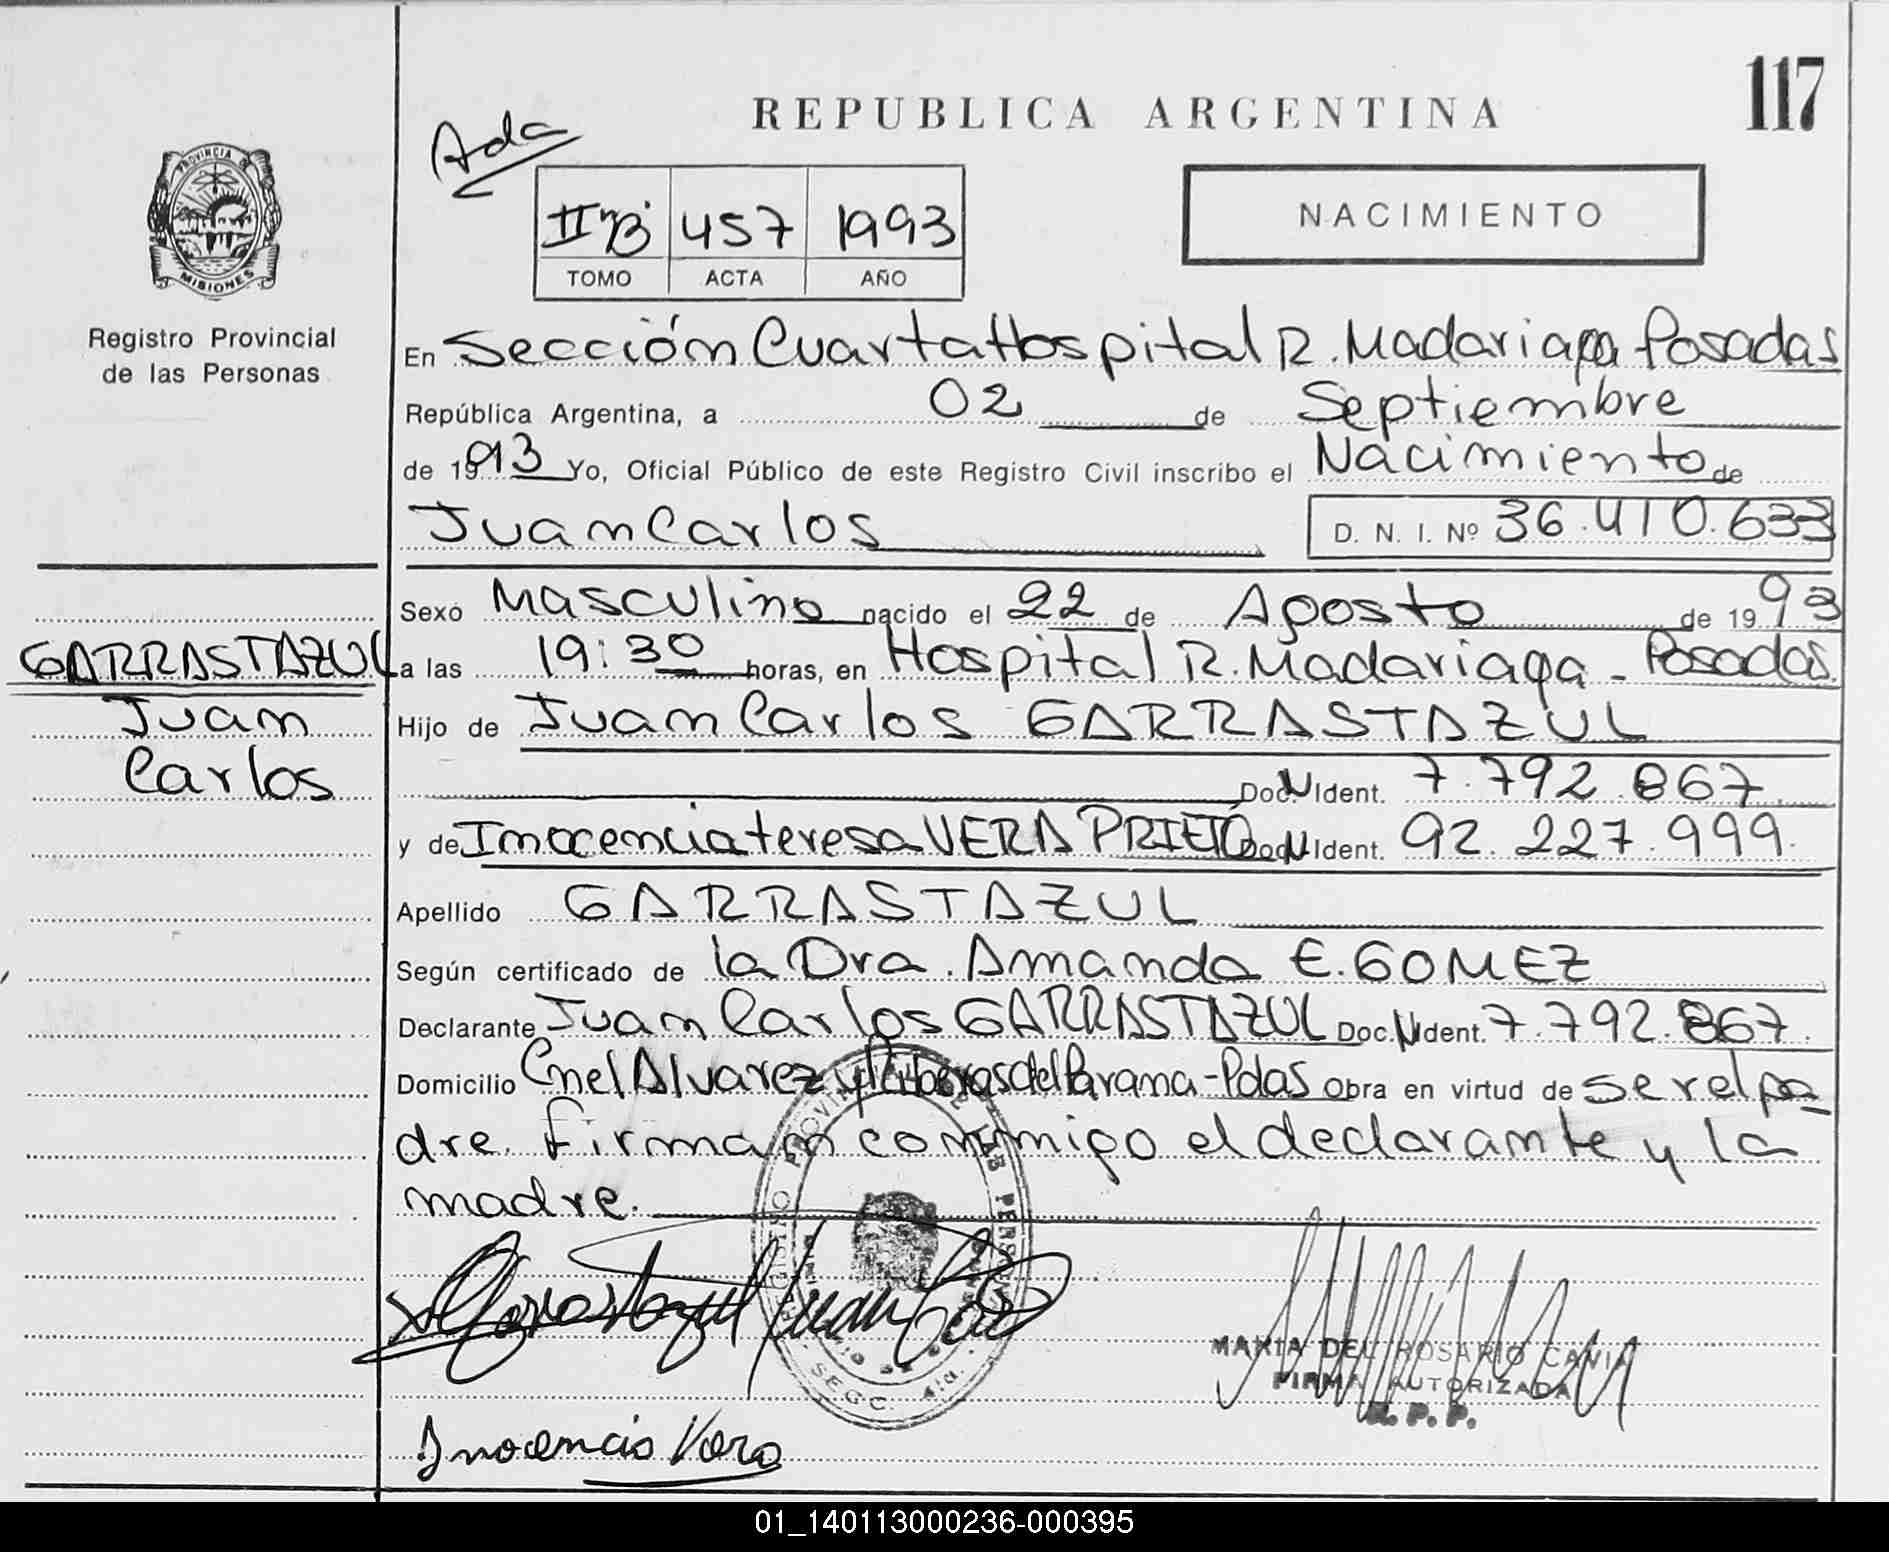 117
REPUBLICA ARGENTINA
Ada
II "B" 457 1993
TOMO ACTA AÑO
NACIMIENTO
PROVINCIA DE
MISIONES
Registro Provincial
de las Personas
En Sección Cuarta Hospital R. Madariaga Posadas
República Argentina, a 02 de Septiembre
de 1993 Yo, Oficial Público de este Registro Civil inscribo el Nacimiento de
Juan Carlos D. N. I. Nº 36.410.633
Sexo Masculino nacido el 22 de Agosto de 1993
GARRASTAZUL
Juan
Carlos
a las 19:30 horas, en Hospital R. Madariaga - Posadas
Hijo de Juan Carlos GARRASTAZUL
Doc. N Ident. 7.792.867
y de Inocencia teresa VERA PRIETO Doc. N Ident. 92.227.999.
Apellido GARRASTAZUL
Según certificado de la Dra. Amanda E. GOMEZ
Declarante Juan Carlos GARRASTAZUL Doc. N Ident. 7.792.867.
Domicilio Cnel Alvarez y Riberas del Parana - Pdas Obra en virtud de ser el pa-
dre. Firman conmigo el declarante y la
madre.
Garrastazul Juan Carlos
MARIA DEL ROSARIO CAVIA
FIRMA AUTORIZADA
R. P. P.
Inocencia Vera
01_140113000236-000395